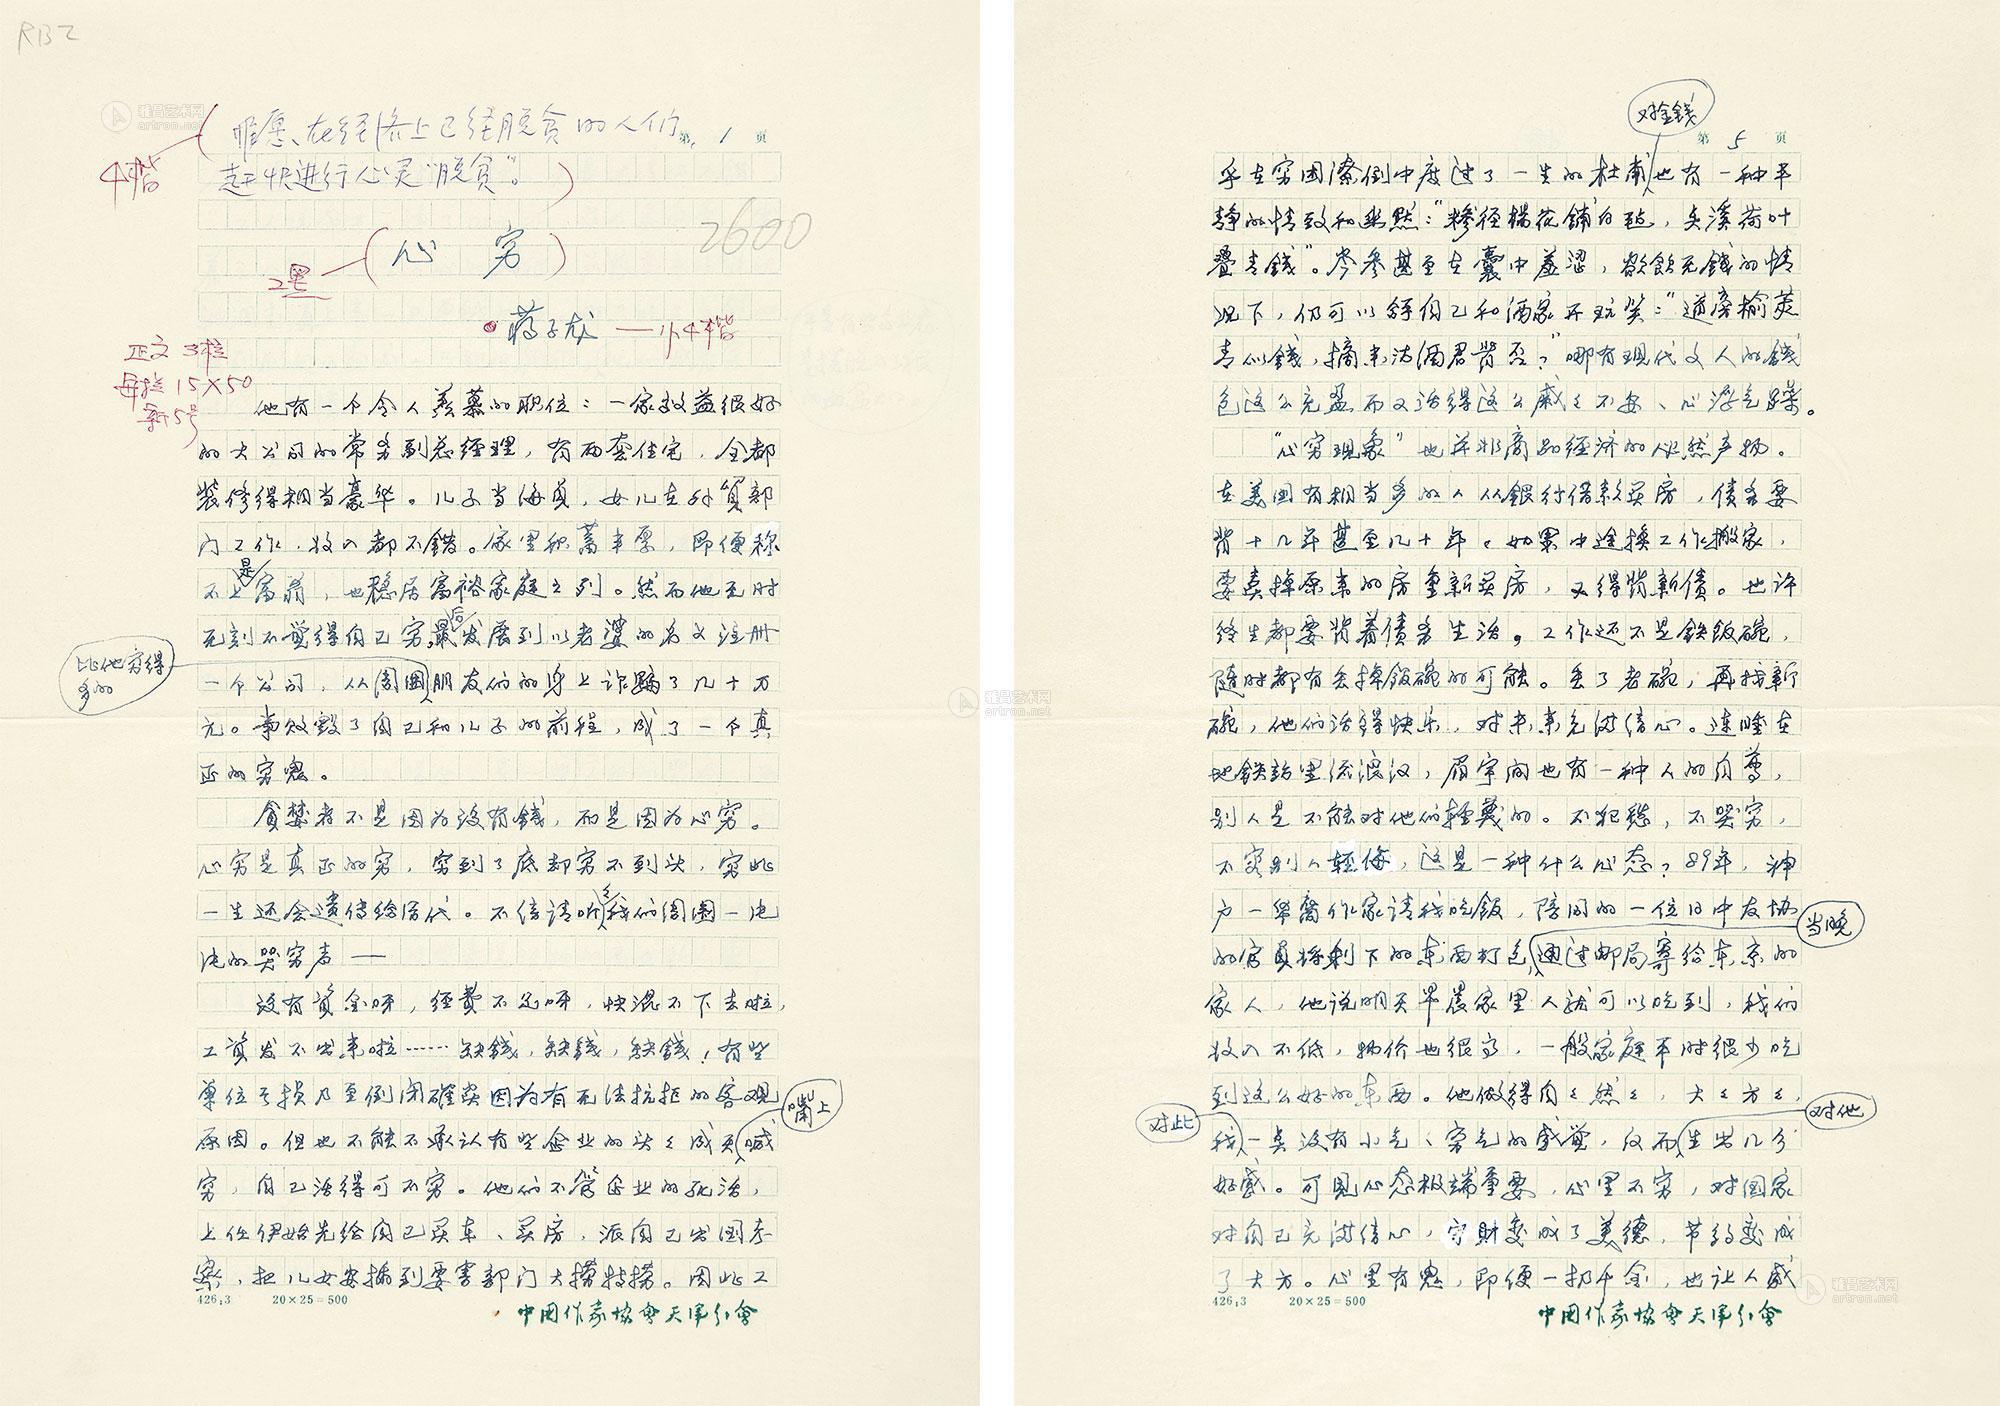 RBZ
惟愿、在经济上已经脱贫的人们
赶快进行心灵"脱贫"。
第 1 页
4楷
2600
心 穷
2黑
蒋子龙
小4楷
正文 3栏
每栏 15×50
新5号
他有一个令人羡慕的职位：一家效益很好
的大公司的常务副总经理，有两套住宅，全都
装修得相当豪华。儿子当海员，女儿在外贸部
门工作，收入都不错。家里积蓄丰厚，即便称
不上是富翁，也稳居富裕家庭之列。然而他无时
无刻不觉得自己穷，最后发展到以老婆的名义注册
比他穷得
多的
一个公司，从周围朋友们的身上诈骗了几十万
元。事败毁了自己和儿子的前程，成了一个真
正的穷鬼。
贪婪者不是因为没有錢，而是因为心穷。
心穷是真正的穷，穷到了底却穷不到头，穷此
一生还会遗传给后代。不信请听我们周围一片
片的哭穷声——
没有资金呀，经费不足呀，快混不下去啦，
工资发不出来啦……缺錢，缺錢，缺錢！有些
单位亏损乃至倒闭確实因为有无法抗拒的客观
嘴上
原因。但也不能不承认有些企业的头头成天喊
穷，自己活得可不穷。他们不管企业的死活，
上任伊始先给自己买车、买房，派自己出国考
察，把儿女安插到要害部门大捞特捞。因此工
426;3 20×25=500
中国作家协会天津分会
对金錢
第 5 页
乎在穷困潦倒中度过了一生的杜甫也有一种平
静的情致和幽默："糁径楊花鋪白毡，点溪荷叶
疊青錢"。岑参甚至在囊中羞涩，欲飲无錢的情
况下，仍可以拿自己和酒家开玩笑："道旁榆荚
青似錢，摘来沽酒君肯否？"哪有现代文人的錢
包这么充盈而又活得这么慼慼不安、心浮气躁。
"心穷现象"也并非商品经济的必然产物。
在美国有相当多的人从銀行借款买房，债务要
背十几年甚至几十年。如果中途換工作搬家，
要卖掉原来的房重新买房，又得背新债。也许
终生都要背着债务生活。工作还不是铁飯碗，
随时都有丢掉飯碗的可能。丢了老碗，再找新
碗，他们活得快乐，对未来充满信心。连睡在
地铁站里流浪汉，眉宇间也有一种人的自尊，
别人是不能对他们輕蔑的。不犯愁，不哭穷，
不容别人輕侮，这是一种什么心态？89年，神
户一华裔作家请我吃飯，陪同的一位日中友协
当晚
的官员将剩下的东西打包通过邮局寄给东京的
家人，他说明天早晨家里人就可以吃到，我们
收入不低，物价也很高，一般家庭平时很少吃
到这么好的东西。他做得自自然然，大大方方，
对此
对他
我一点没有小气、穷气的感觉，反而生出几分
好感。可见心态极端重要，心里不穷，对国家
对自己充满信心，守財变成了美德，节约变成
了大方。心里有鬼，即便一掷千金，也让人感
426;3 20×25=500
中国作家协会天津分会
雅昌艺术网
artron.net